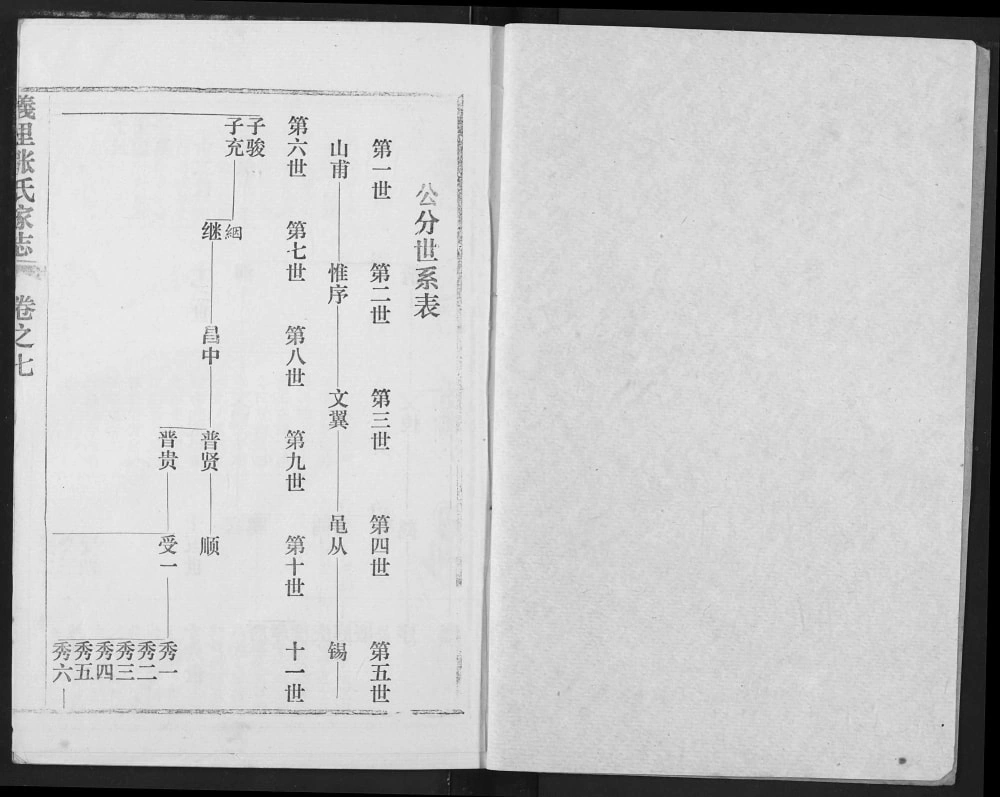 公分世系表
第一世 第二世 第三世 第四世 第五世
山甫 惟序 文翼 黾从 锡
第六世 第七世 第八世 第九世 第十世 十一世
子骏
子充 絪
继 昌中 普贤 顺
普贵 受一 秀一
秀二
秀三
秀四
秀五
秀六
義里张氏家志 卷之七